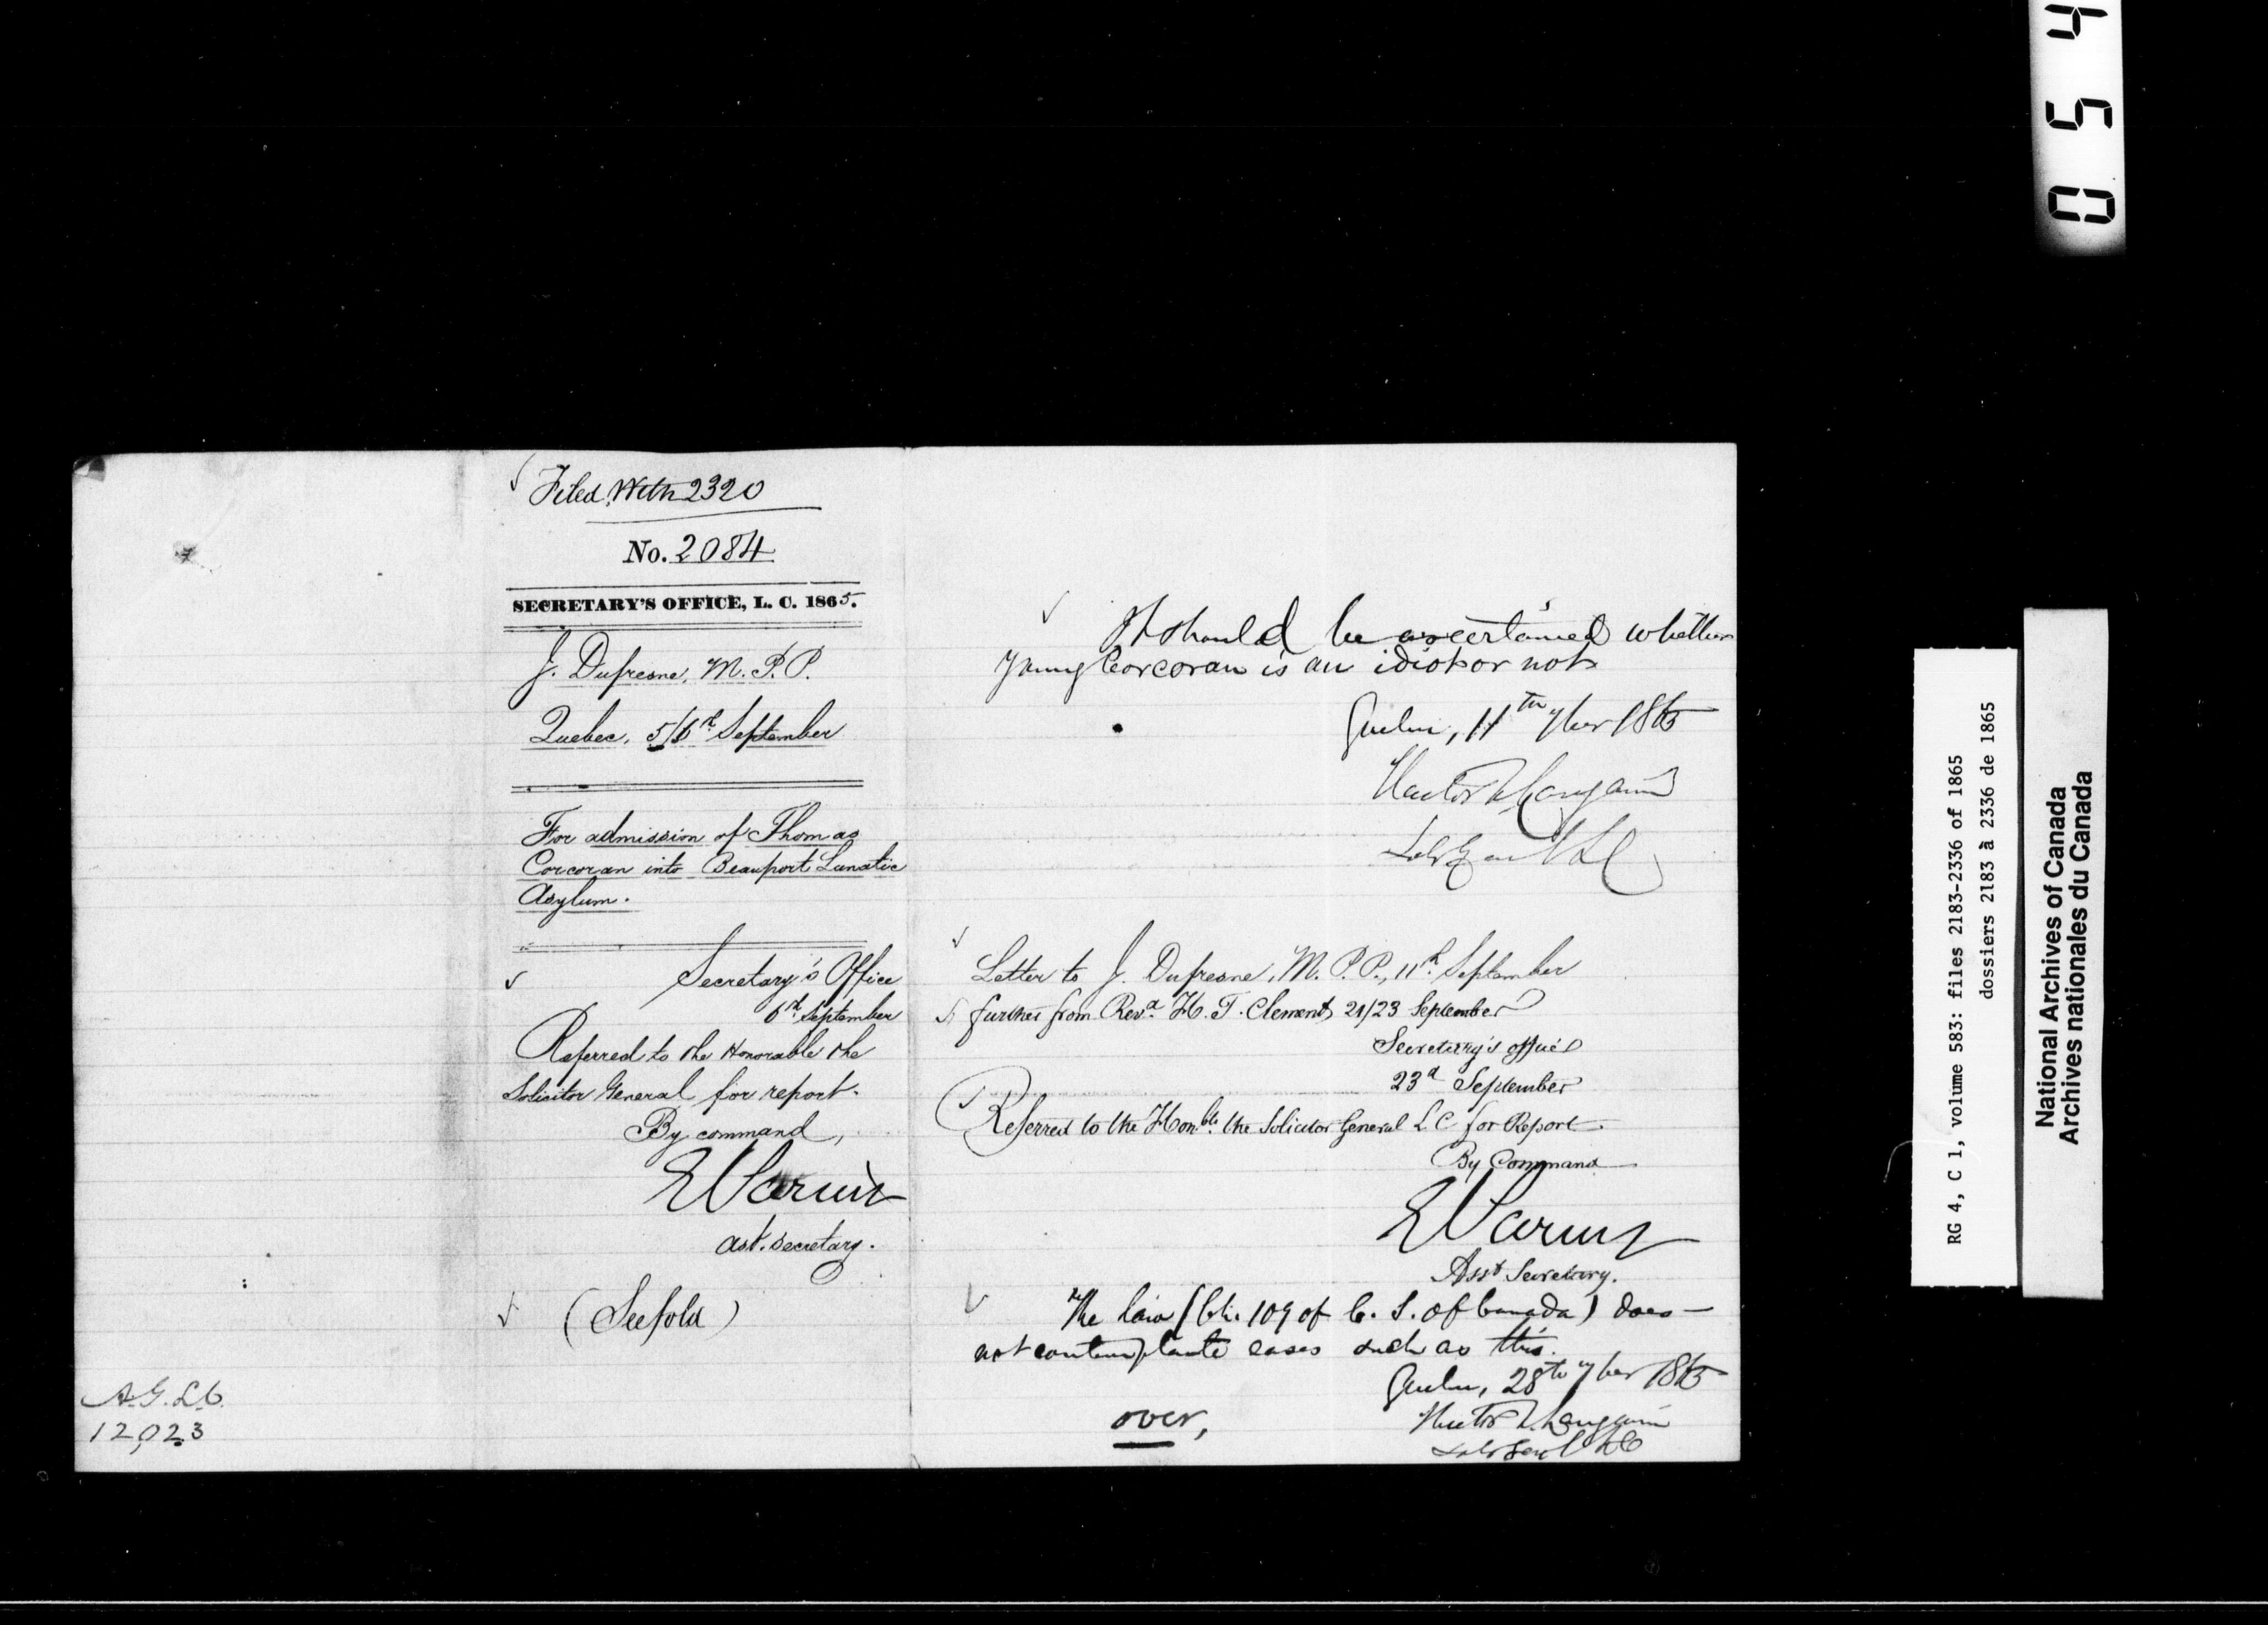 Filed With 2320
No. 2084
SECRETARY'S OFFICE, L. C. 1865.
J. Dufresne, M. P. P.
Quebec, 5/6th September
For admission of Thomas
Corcoran into Beauport Lunatic
Asylum.
Secretary's Office
6th September
Referred to the Honorable the
Solicitor General for report.
By command,
E Parent
Ast. Secretary.
(See fold)
A. G. L. C.
12,023
It should be ascertained whether
young Corcoran is an idiot or not
Quebec, 11th 7ber 1865
Hector L. Langevin
Solr Genl L C
Letter to J. Dufresne, M. P. P., 11th September
further from Revd. H. T. Clement, 21/23 September
Secretary's office
23d September
Referred to the Honble. the Solicitor General L C for Report.
By Command
E Parent
Asst Secretary.
The law (Ch. 109 of C. S. of Canada) does
not contemplate cases such as this.
Quebec, 28th 7ber 1865
Hector L. Langevin
Solr Genl L C
over,
0 5 4
RG 4, C 1, volume 583: files 2183-2336 of 1865
dossiers 2183 à 2336 de 1865
National Archives of Canada
Archives nationales du Canada